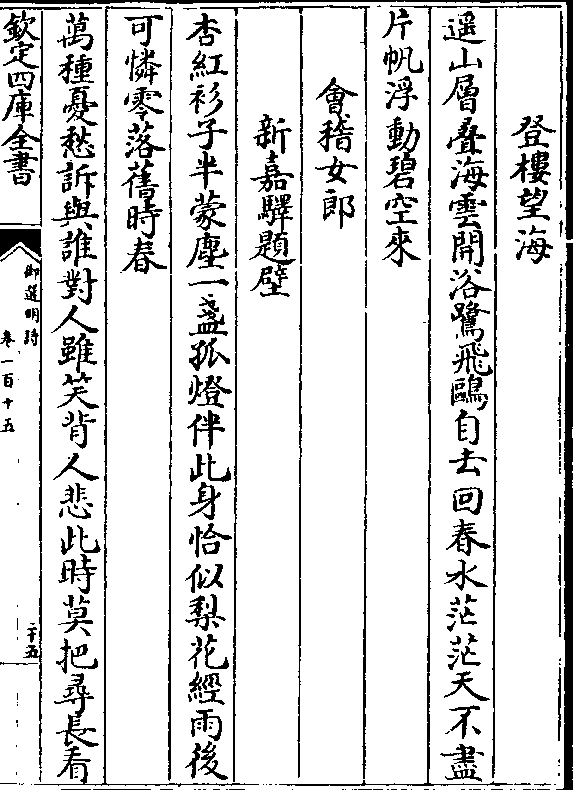 登樓望海
遥山層疊海雲開浴鷺飛鷗自去回春水茫茫天不盡
片帆浮動碧空來
會稽女郎
新嘉驛題壁
杏紅衫子半蒙塵一盞孤燈伴此身恰似梨花經雨後
可憐零落舊時春
萬種憂愁訴與誰對人雖笑背人悲此時莫把尋長看
欽定四庫全書
御選明詩
卷一百十五
二十五